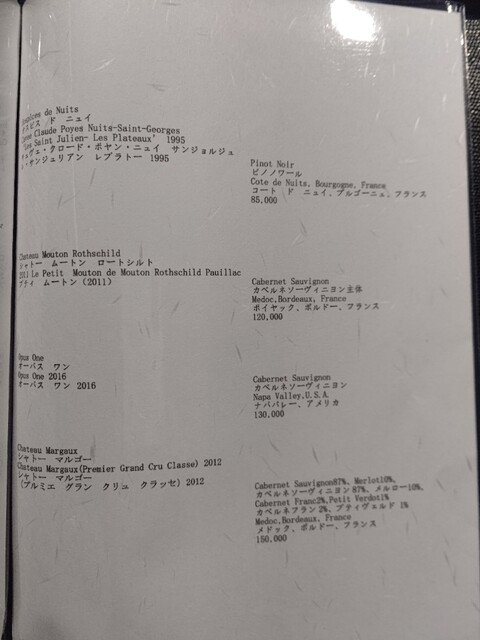 de Nuits
ド ニュイ
Claude Poyes Nuits-Saint-Georges
Saint Julien- Les Plateaux' 1995
クロード・ポヤン・ニュイ サンジョルジュ
サンジュリアン レプラトー 1995
Pinot Noir
ピノノワール
Cote de Nuits, Bourgogne, France
コート ド ニュイ、ブルゴーニュ、フランス
85,000
Chateau Mouton Rothschild
シャトー ムートン ロートシルト
2011 Le Petit Mouton de Mouton Rothschild Pauillac
プティ ムートン (2011)
Cabernet Sauvignon
カベルネソーヴィニヨン主体
Medoc,Bordeaux, France
ポイヤック、ボルドー、フランス
120,000
Opus One
オーパス ワン
Opus One 2016
オーパス ワン 2016
Cabernet Sauvignon
カベルネソーヴィニヨン
Napa Valley,U.S.A.
ナパバレー、アメリカ
130,000
Chateau Margaux
シャトー マルゴー
Chateau Margaux(Premier Grand Cru Classe) 2012
シャトー マルゴー
(プルミエ グラン クリュ クラッセ) 2012
Cabernet Sauvignon87%, Merlot10%,
カベルネソーヴィニヨン 87%、メルロー10%、
Cabernet Franc2%,Petit Verdot1%
カベルネフラン 2%、プティヴェルド 1%
Medoc,Bordeaux, France
メドック、ボルドー、フランス
150,000